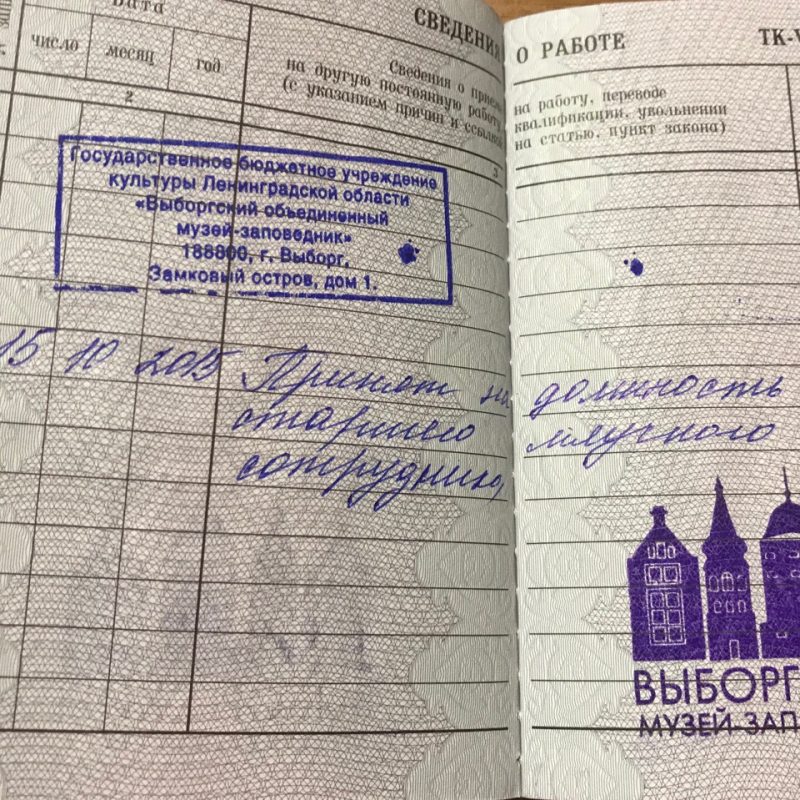 Дата
СВЕДЕНИЯ О РАБОТЕ ТК-V
число месяц год
Сведения о прие
на работу, переводе
на другую постоянную работу
квалификации, увольнении
(с указанием причин и ссылкой
на статью, пункт закона)
2 3
Государственное бюджетное учреждение
культуры Ленинградской области
«Выборгский объединенный
музей-заповедник»
188800, г. Выборг,
Замковый остров, дом 1.
15 10 2015 Принят на должность
старшего научного
сотрудника
ВЫБОРГ
МУЗЕЙ-ЗАП